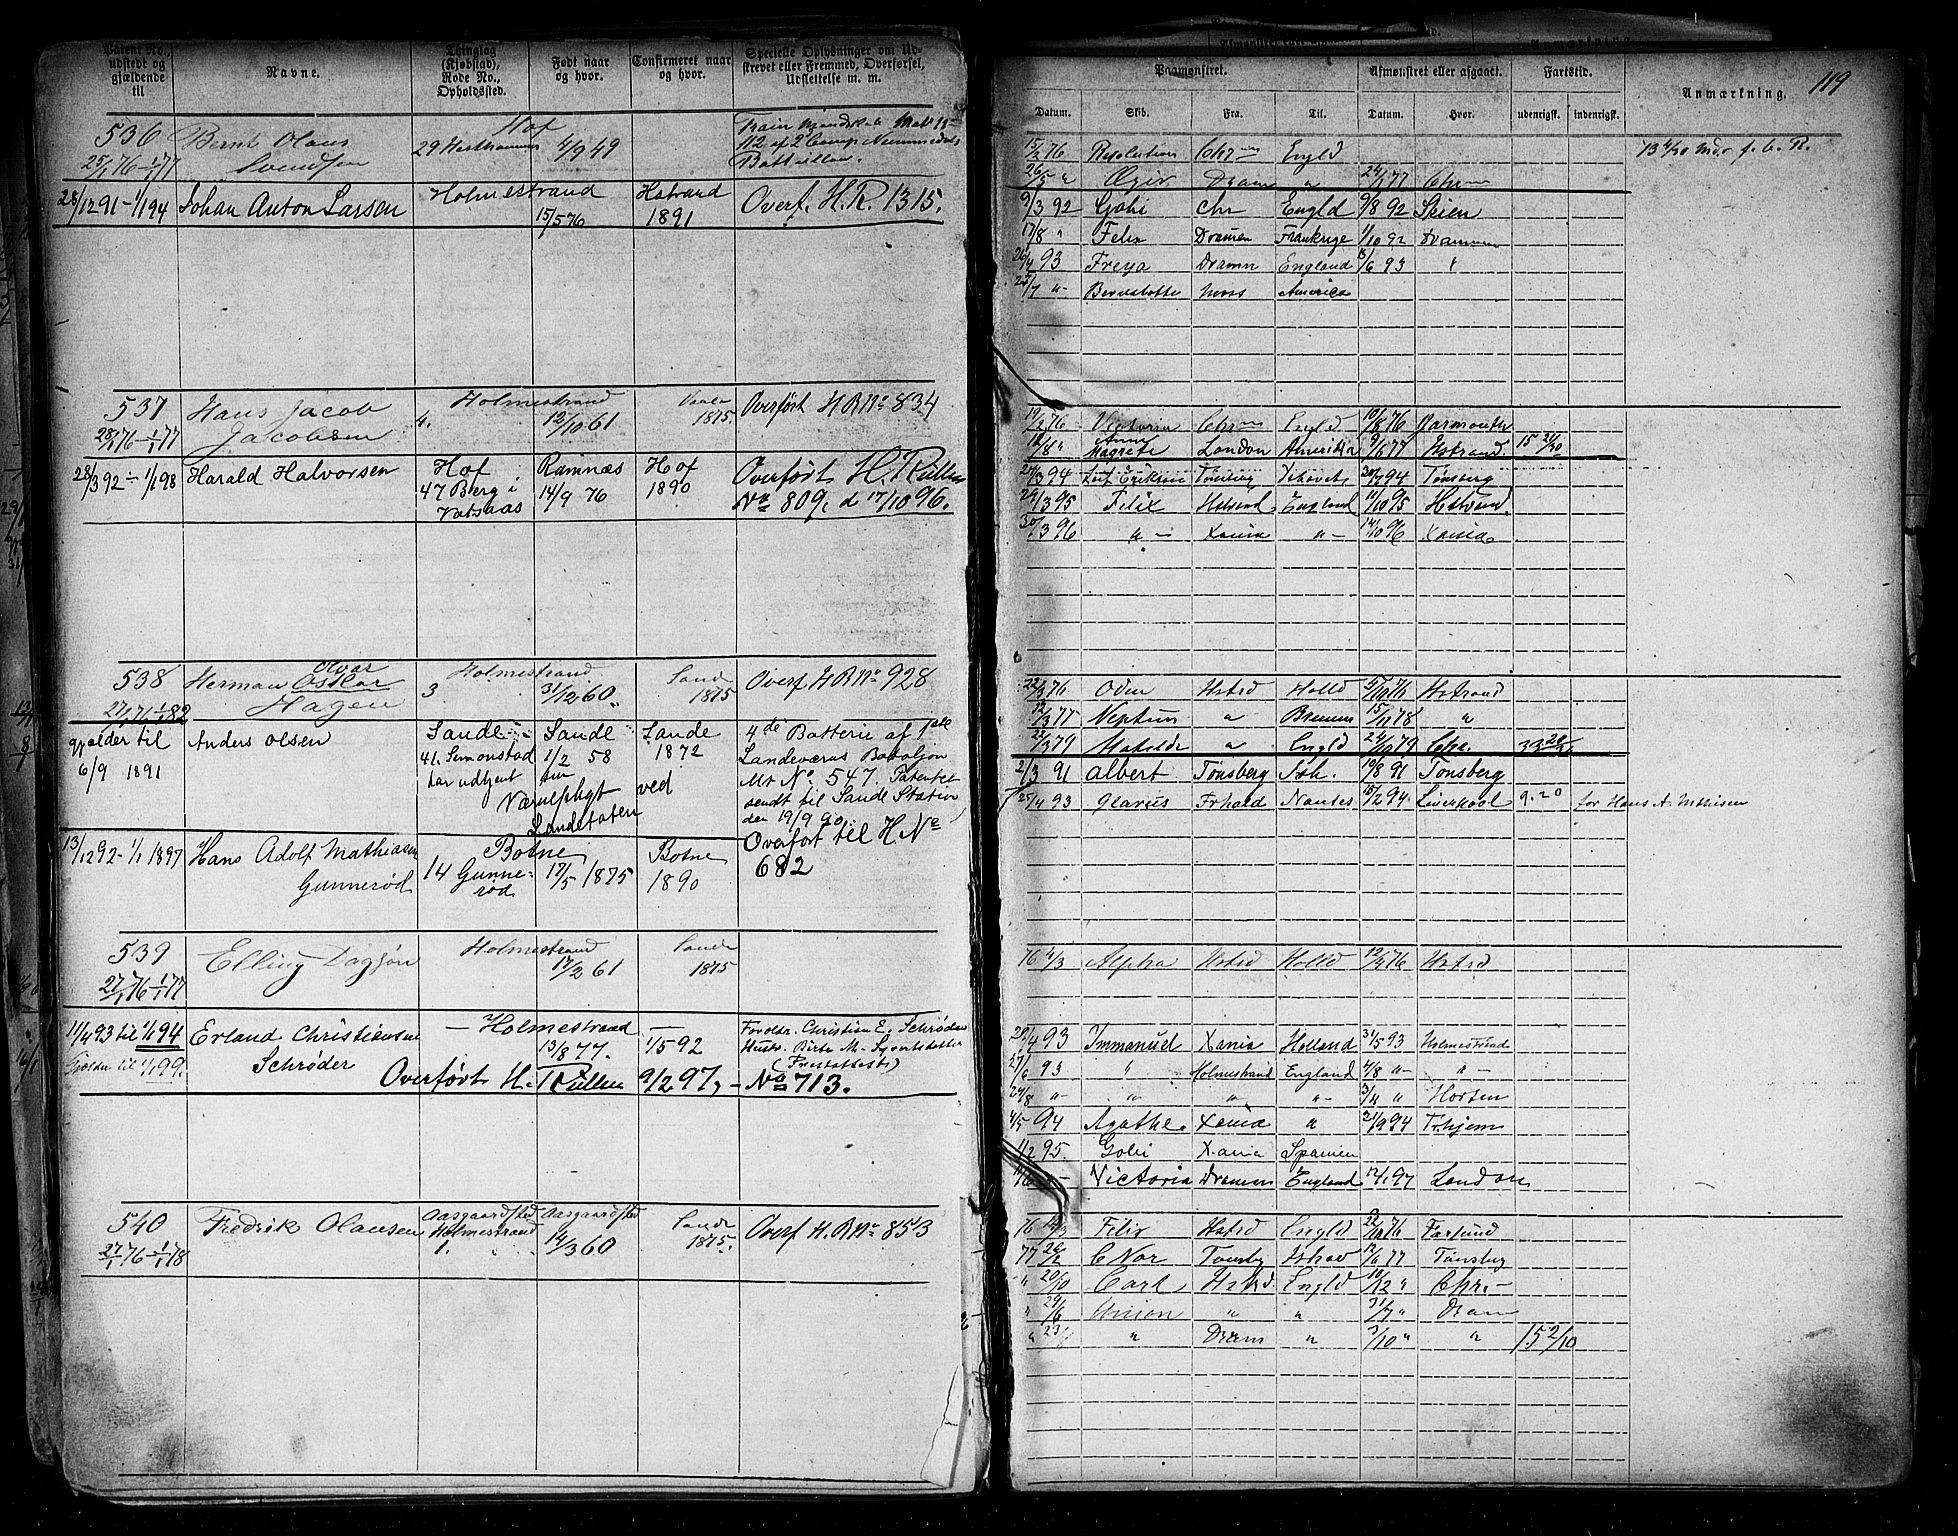 Patent No. udstedt og gjældende til
Navne.
Thinglag (Kjøbstad), Rode No., Opholdssted.
Født naar og hvor.
Confirmeret naar og hvor.
Specielle Oplysninger om Udstrevet eller Fremmed, Overførsel, Udslettelse m. m.
536
25/1 76 - 1/1 77
Bernt Olaus
Svendsen
Hof
29
4/9 49
112 af 2 Comp. Nummedals
Battaillon.
28/12 91 - 1/1 94
Johan Anton Larsen
Holmestrand
15/5 76
Hstrand
1891
Overf. H. R. 1315.
537
28/1 76 - 1/1 77
Hans Jacob
Jacobsen
Holmestrand
4.
12/10 61
1875.
Overført H R No 834
28/3 92 - 1/1 98
Harald Halvorsen
Hof
47 Berg i
Vatsaas
Ramnæs
14/9 76
Hof
1890
Overført H. Rullen
No 809, d 17/10 96.
538
27/1 76 - 1/1 82
Herman Oskar
Hagen
Holmestrand
3
31/12 60.
Sande
1875
Overf H R No 928
gjælder til
6/9 1891
Anders Olsen
Sande
41. Simonstad
har udtjent sin
Værnepligt ved
Landetaten
Sande
1/2 58
Sande
1872
4de Batterie af 1ste
Landeværns Bataljon
Mt No 547. Patentet
sendt til Sande Station
den 19/9 90.
13/12 92 - 1/1 1897
Hans Adolf Mathiasen
Gunnerød
Botne
14 Gunne-
rød
17/5 1875
Botne
1890
Overført til H No
682
539
27/1 76 - 1/1 77
Elling Dagsjøn
Holmestrand
17/2 61
Sande
1875
11/4 93 til 1/1 94
Gjælder til 1/1 99.
Erland Christiensen
Schrøder
- Holmestrand -
13/8 77.
1/5 92
Foreldr. Christian E. Schrøder
(Prestattest)
Overført H. Rullen 9/2 97, - No 713.
540
27/1 76 - 1/1 78
Fredrik Olausen
Aasgaardsted
Holmestrand
1.
Aasgaardsted
14/3 60
Sande
1875.
Overf H. R No 853
119
Paamønstret.
Afmønstret eller afgaaet.
Fartstid.
Anmærkning.
Datum. Skib. Fra. Til. Datum. Hvor. udenrigsk. indenrigsk.
15/2 76 Resolution Chr Engld 13 4/30 Md. f. b. R.
26/5 " Ægir Dram " 24/1 77 Chr
9/3 92 Gobi Chr Engld 9/8 92 Skien
17/8 " Felix Dramen Frankrige 11/10 92 Drammen
26/4 93 Freya Dramn England 8/6 93 "
25/7 " Moss Amerika
14/2 76 Victoria Chr Engld 10/8 76 Yarmouth
18/8 " Anne Magrete London Amerika 9/6 77 Hstrand. 15 21/30
27/3 94 Leif Eriksen Tønsberg Ishavet 30/7 94 Tønsberg
29/3 95 Felix Hstrand England 11/10 95 Hstrand.
30/3 96 " - Xania " - 14/10 96 Xania
22/3 76 Oden Hstrd Holld Hstrand
12/3 77 Neptun " Bremen 15/11 78 "
22/3 79 Matilde " Engld 24/10 79 Chr.
2/3 91 Albert Tønsberg Ish. 19/8 91 Tønsberg
25/4 93 Glarus Frhald Nantes 15/2 94. Liverpool 9.20 for Hans A. Mathisen
76 4/3 Alpha Hstrd Holld 12/4 76 Hstrd
29/4 93 Immanuel Xania Holland 31/5 93 Holmestrand
27/6 93 " Holmestrand England 4/8 " - " -
24/8 " - " " " - 3/11 " Horten
4/5 94 Agathe. Xania " 21/9 94 Trhjem
11/2 95. Gobi Xania Spanien
Victoria Dramen England 12/1 97 London
76 Felix Hstrd Engld 22/10 76 Farsund
77 26/2 C Nor Tønsbg Ishav 12/6 77 Tønsbg
" 20/10 Carl Hstrd Engld 10/12 " Chr. -
" 29/6 Union " " 31/7 " Dram
" Dram " 3/10 " " 15 2/10